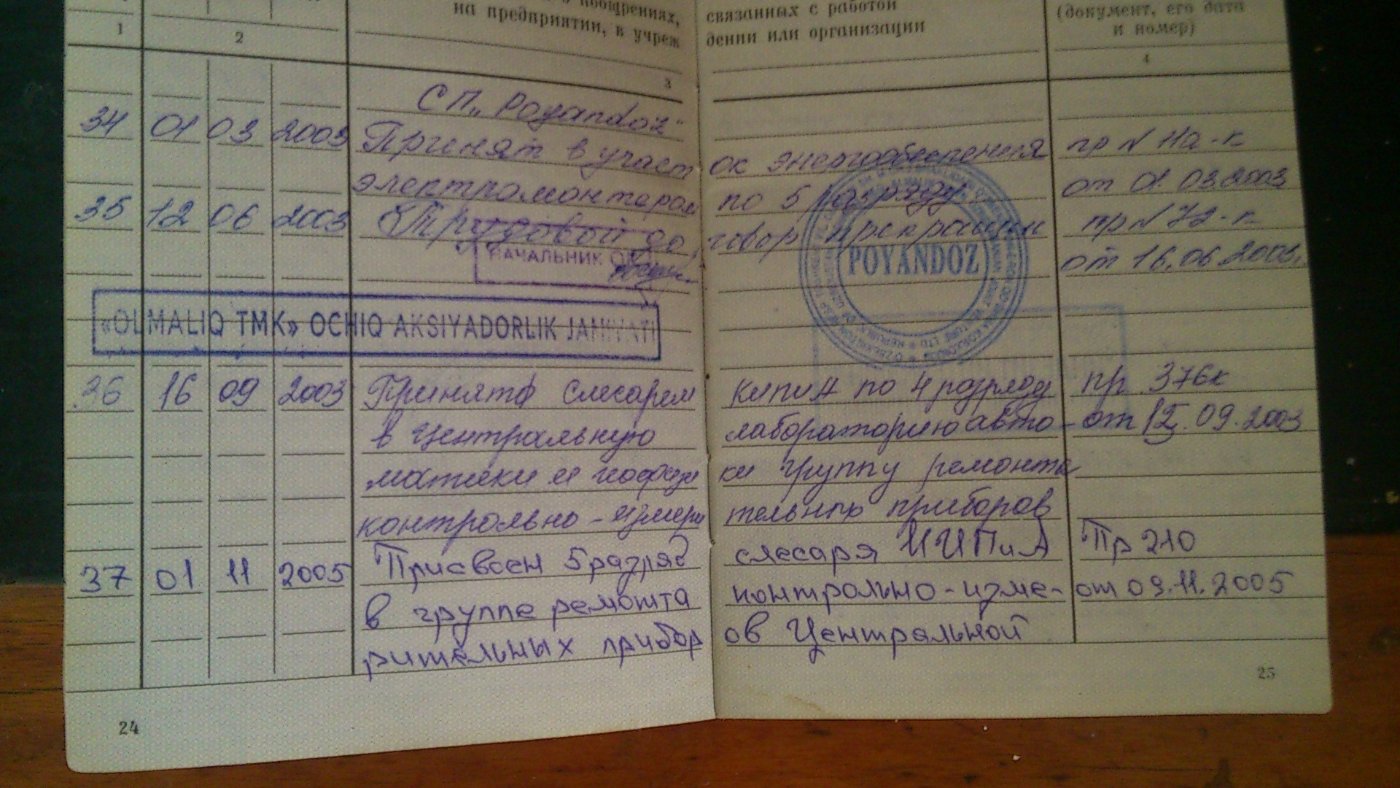 поощрениях, связанных с работой (документ, его дата
на предприятии, в учреж дении или организации и номер)
1 2 3 4
СП „Poyandoz“
34 01 03 2003 Принят в участ ок энергообеспечения пр N 11а-к
электромонтером по 5 разряду от 01.03.2003
35 12 06 2003 Трудовой до говор прекращен пр N 72-к
НАЧАЛЬНИК от 16.06.2003.
POYANDOZ
«OLMALIQ TMK» OCHIQ AKSIYADORLIK JAMIYATI
36 16 09 2003 Принят слесарем КИПиА по 4 разряду пр. 376к
в Центральную лабораторию авто- от 12.09.2003
матики и ки группу ремонта
контрольно-измери тельных приборов
37 01 11 2005 Присвоен 5 разряд слесаря КИПиА Пр 210
в группе ремонта контрольно-изме- от 09.11.2005
рительных прибор ов Центральной
24 25